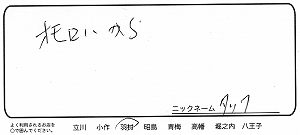 オモロいから
ニックネーム タック
よく利用されるお店を
○で囲んでください。
立川 小作 羽村 昭島 青梅 高幡 堀之内 八王子